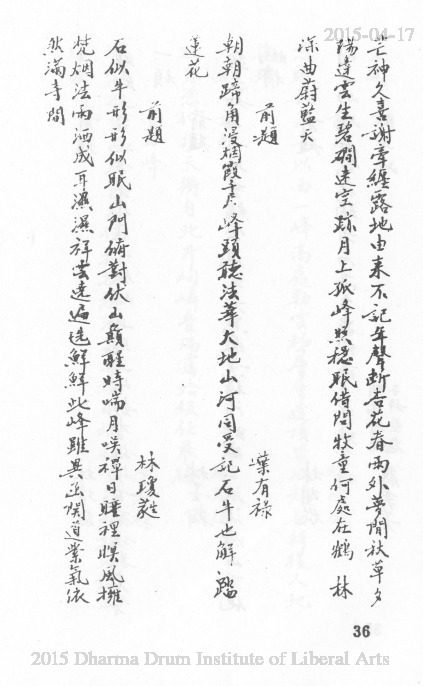 2015-04-17
芒神久喜謝牽纏露地由来不記年聲断杏花春雨外夢閒秋草夕
陽邊雲生碧磵迷空跡月上孤峰照穏眠借問牧童何處在鶴林
深曲蔚藍天
前題
葉有祿
朝朝蹄角浸烟霞千尺峰頭聽法華大地山河同受記石牛也解踏
蓮花
前題
林瓊蕤
石似牛形形似眠山門偹對伏山巔醒時喘月唉禪日睡裡嗅風擁
梵烟法雨洒成耳濕濕祥雲遶遍毛鮮鮮此峰雖異函関道紫氣依
然滿寺間
36
2015 Dharma Drum Institute of Liberal Arts